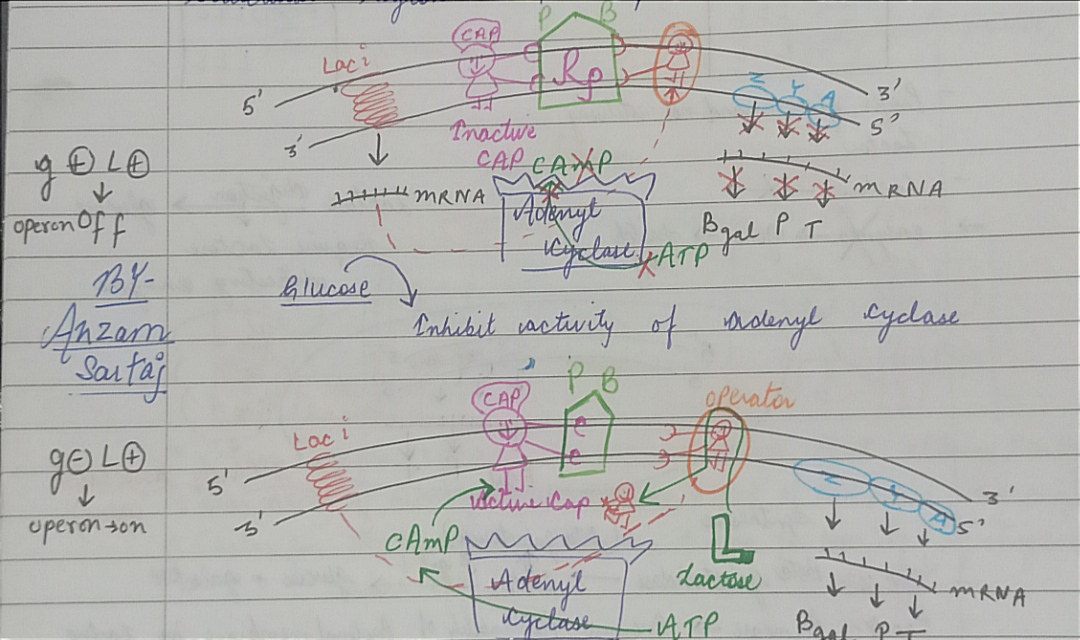 P B
CAP
Lac i
Rp
5' 3'
Z Y A
3' 5'
Inactive
CAP CAMP
g ⊕ L ⊕
mRNA
mRNA
operon Off
Adenyl
Cyclase
ATP
Bgal P T
BY-
Anzam
Sartaj
Glucose
Inhibit activity of adenyl cyclase
P B
CAP
operator
Lac i
g ⊖ L ⊕
5' 3'
Z Y A
3' 5'
operon→on
Active Cap
CAMP
Lactose
Adenyl
Cyclase
ATP
mRNA
Bgal P T